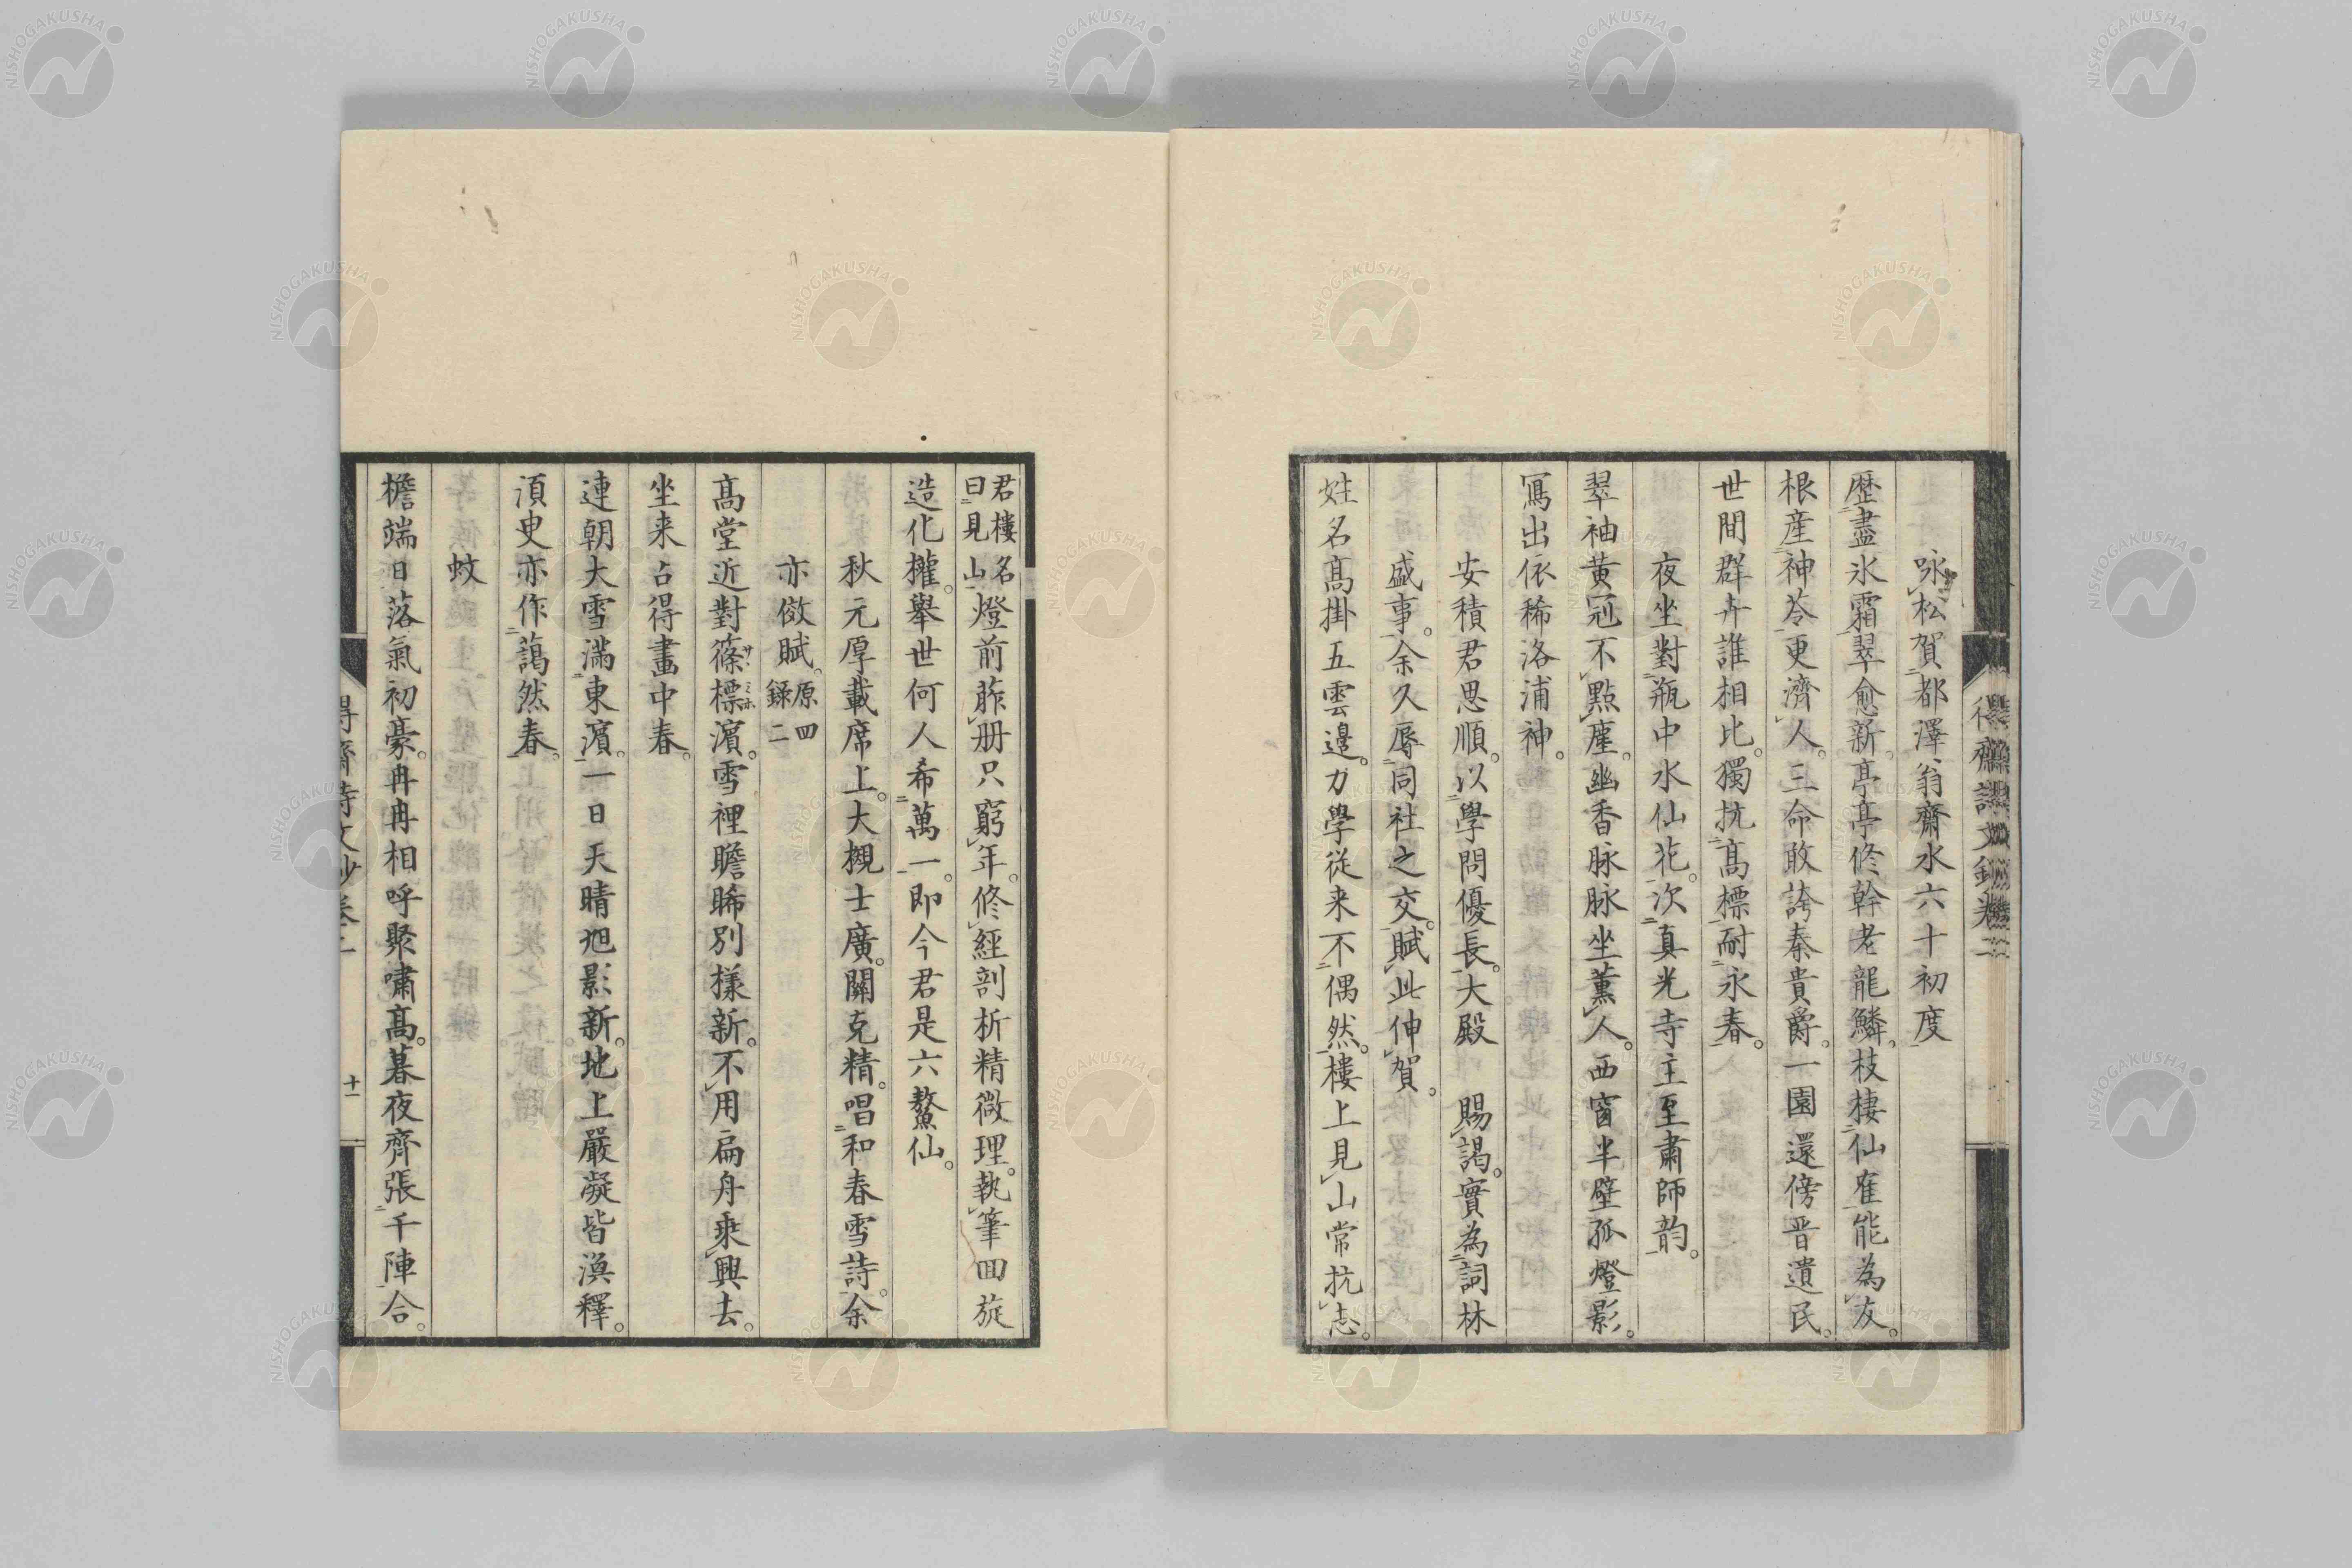 咏松賀都澤翁齋水六十初度
歴盡氷霜翠愈新。亭亭修幹老龍鱗。枝棲仙隺能為友。
根産神苓更濟人。三命敢誇秦貴爵。一園還傍晋遺民。
世間群卉誰相比。獨抗髙標耐永春。
夜坐對瓶中水仙花。次真光寺主至肅師韵。
翠袖黄冠不點塵。幽香脉脉坐薫人。西窗半壁孤燈影。
冩出依稀洛浦神。
安積君思順。以學問優長。大殿 賜謁。實為詞林
盛事。余久辱同社之交。賦此伸賀。
姓名髙掛五雲邉。力學從来不偶然。樓上見山常抗志。
君樓名
曰見山
燈前葄册只窮年。修經剖析精微理。執筆回旋
造化權。舉世何人希萬一。即今君是六鰲仙。
秋元厚載席上。大槻士廣。關克精。唱和春雪詩。余
亦倣賦。
原四
録二
髙堂近對篠標濵。雪裡瞻睎別樣新。不用扁舟乘興去。
坐来占得畫中春。
連朝大雪滿東濵。一日天晴旭影新。地上嚴凝皆渙釋。
須臾亦作藹然春。
蚊
檐端日落氣初豪。冉冉相呼聚嘯髙。暮夜齊張千陣合。
十一
NISHOGAKUSHA